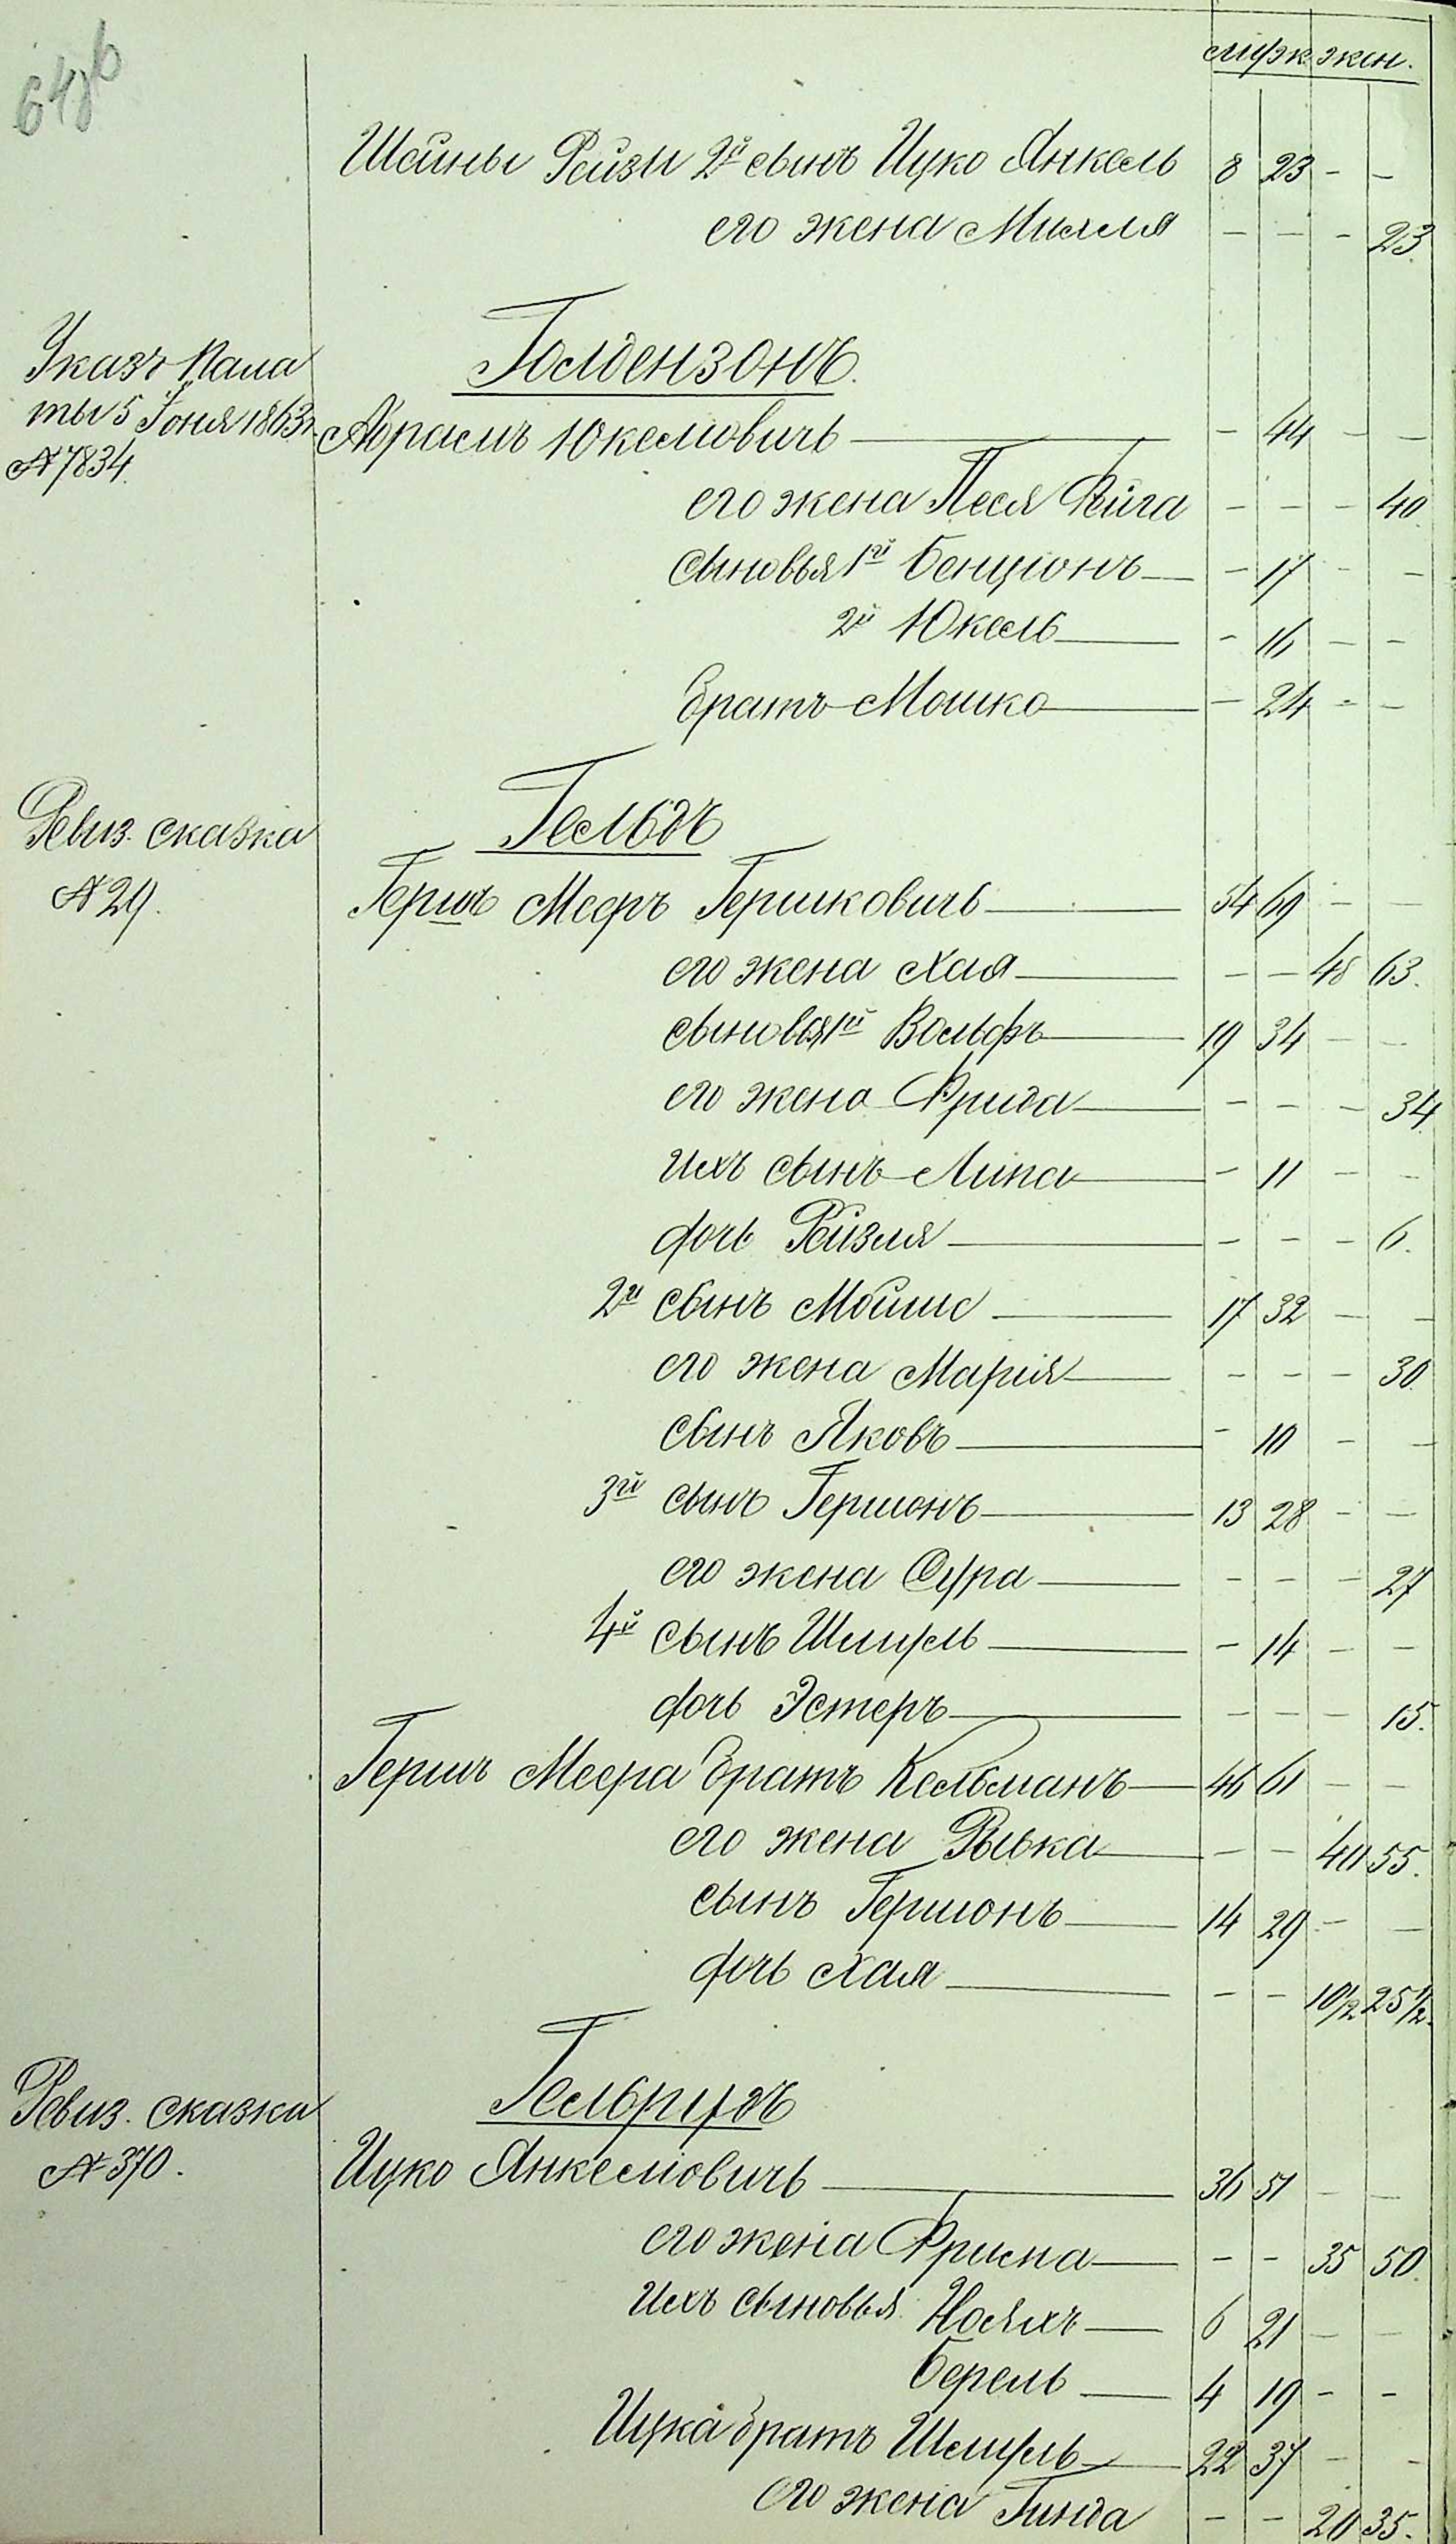 муж. жен.
Шейны Рейзи 2й сынъ Ицко Янкель 8 23 - -
его жена Михля - - - 23.
Голдензонъ.
Указъ Пала
ты 5 Іюня 1863 г.
№ 7834.
Абрамъ Юкелиовичь - 44 - -
его жена Песя Фейга - - - 40.
сыновья 1й Бенціонъ - 17 - -
2й Юкель - 16 - -
братъ Мошко - 24 - -
Гельдъ
Ревиз. сказка
№ 29.
Гершъ Мееръ Гершковичь 54 69 - -
его жена Хая - - 48 63.
сыновья 1й Вольфъ 19 34 - -
его жена Фрида - - - 34.
ихъ сынъ Липа - 11 - -
дочь Рейзля - - - 6.
2й сынъ Мойше 17 32 - -
его жена Марія - - - 30.
сынъ Яковъ - 10 - -
3й сынъ Гершонъ 13 28 - -
его жена Сура - - - 27
4й сынъ Шмуль - 14 - -
дочь Эстеръ - - - 15.
Гершъ Меера братъ Кельманъ 46 61 - -
его жена Рывка - - 40 55.
сынъ Гершонъ 14 29 - -
дочь Хая - - 10½ 25½.
Гельрудъ
Ревиз. сказка
№ 370.
Ицко Янкелиовичь 36 51 - -
его жена - - 35 50.
ихъ сыновья Нояхъ 6 21 - -
Берель 4 19 - -
Ицка братъ Шмуль 22 37 - -
его жена Гинда - - 20 35.